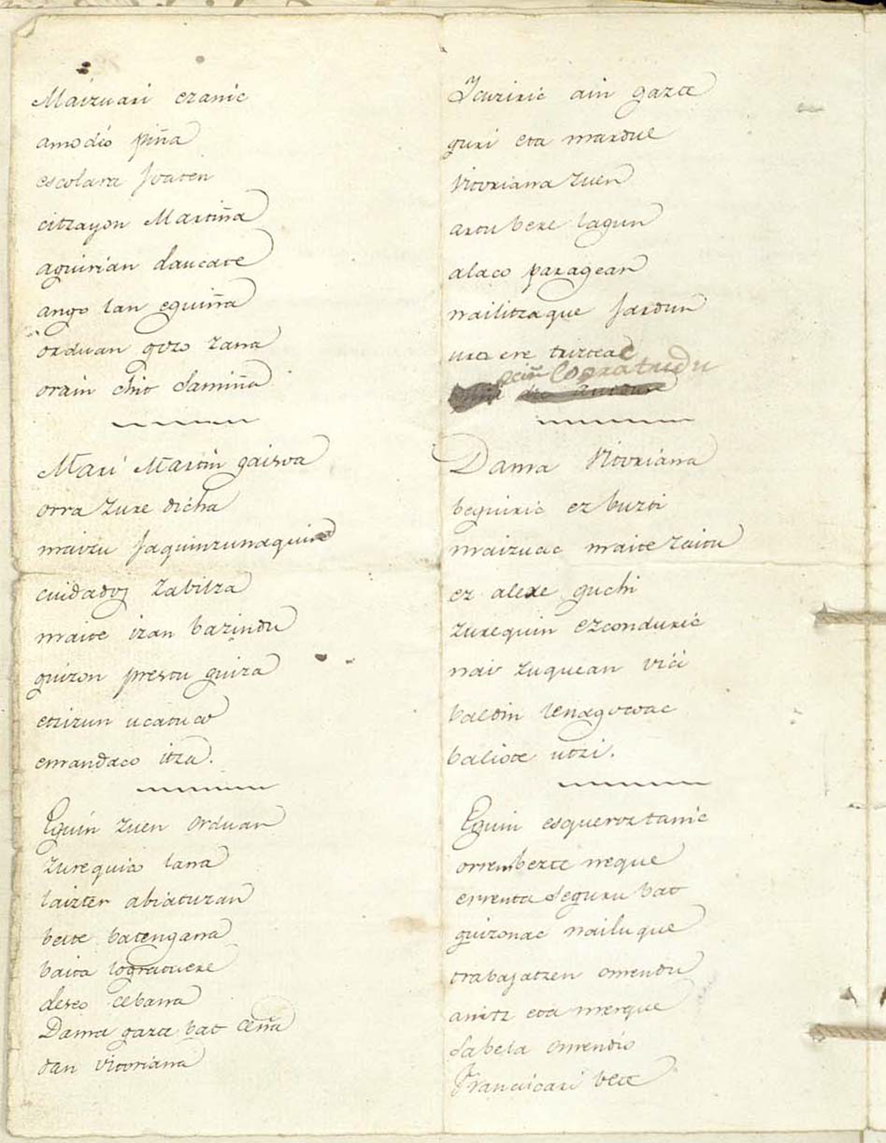 Maizuari ezanic
amodio piña
escolara Joaten
citzayon Martiña
aguirian daucate
ango lan eguiña
orduan gozo zana
orain chit samiña
Mari Martin gaisoa
orra zure dicha
maizu Jaquinzunaquin
cuidadoz zabiltza
maite izan bazindu
guizon prestu guiza
etzizun ucatuco
emandaco itza.
Eguin zuen orduan
zurequin lana
laizter abiatuzan
beste batengana
baita logratuere
deseo cebana
Dama gazte bat ceña
dan Vitoriana
Icusiric ain gazte
guri eta mardul
Vitoriana zuen
artu bere lagun
alaco paragean
nailitzaque Jardun
urte ere tristeac
ceiñ Lograturdu
Dama Vitoriana
beguiric ez buzti
maizuac maite zaitu
ez alere guchi
zurequin ezconduric
nai zuquean vici
baldin lenagocoac
baliote utzi.
Eguin esqueroztanic
orrenbezte neque
errenta seguru bat
guizonac nailuque
trabajatzen omendu
anitz eta merque
sabela omendio
Franciscari bete